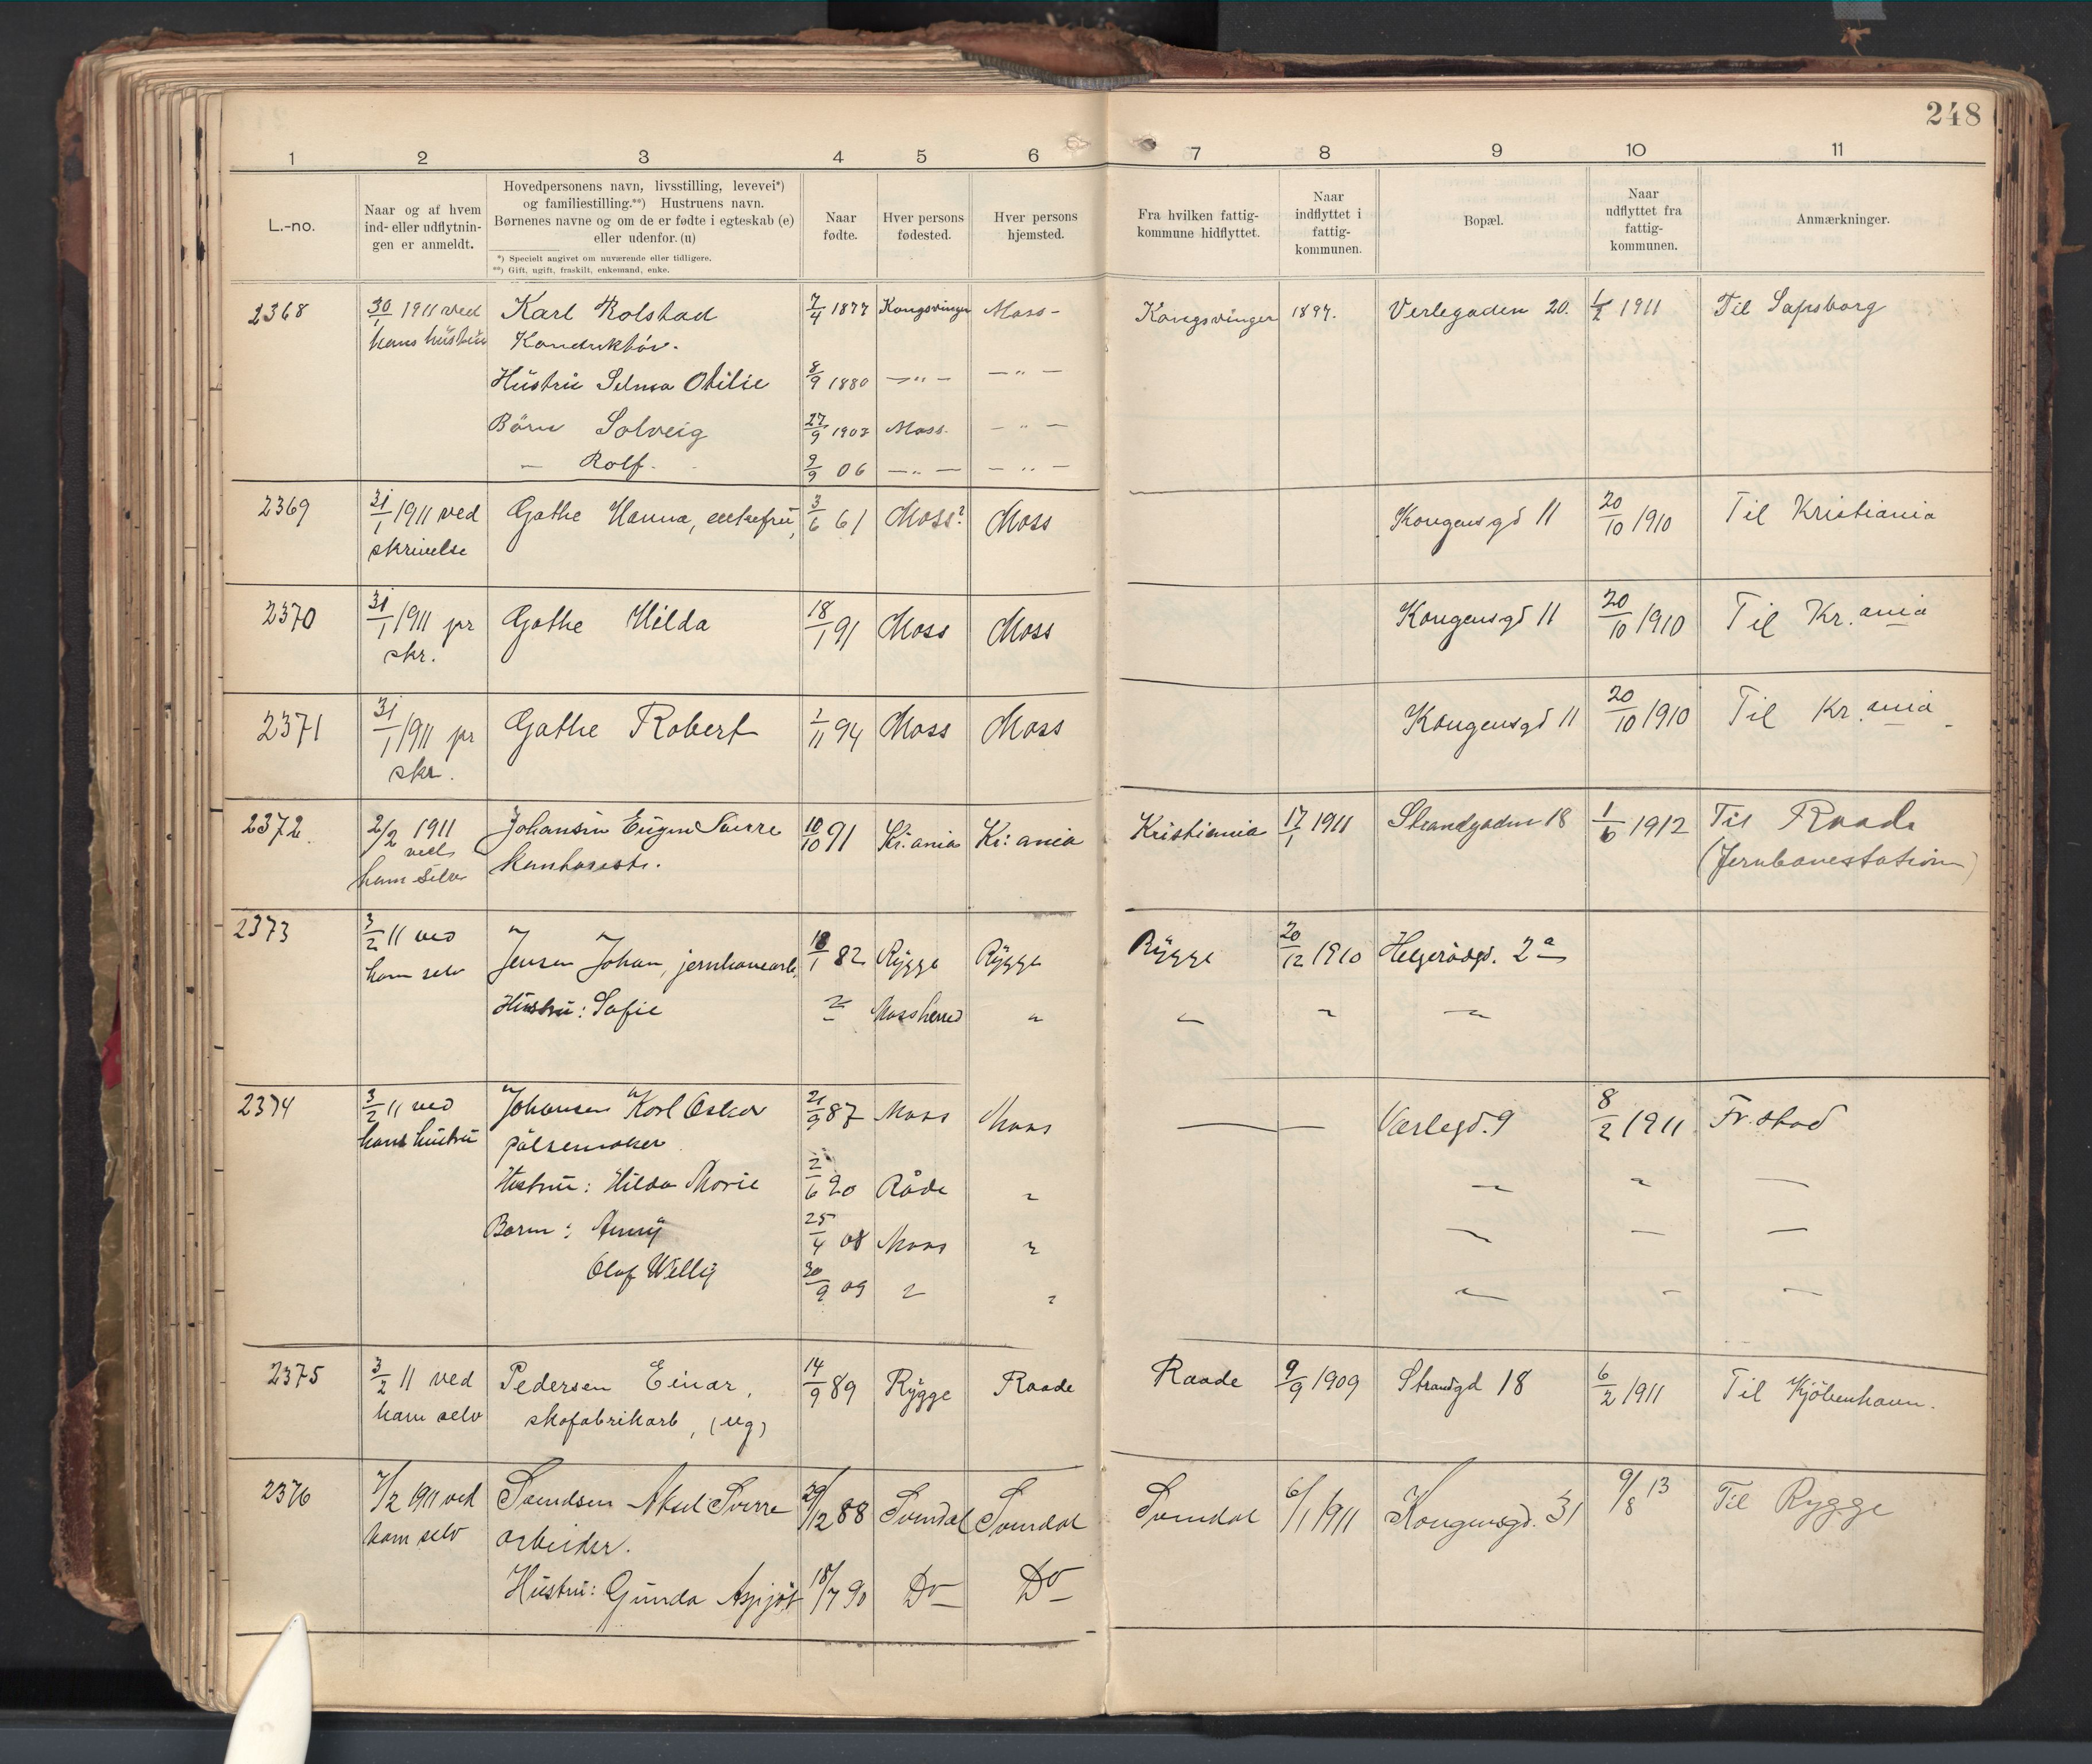 248
1 2 3 4 5 6 7 8 9 10 11
L.-no.
Naar og af hvem
ind- eller udflytnin-
gen er anmeldt.
Hovedpersonens navn, livsstilling, levevei*)
og familiestilling.**) Hustruens navn.
Børnenes navne og om de er fødte i egteskab (e)
eller udenfor. (u)
*) Specielt angivet om nuværende eller tidligere.
**) Gift, ugift, fraskilt, enkemand, enke.
Naar
fødte.
Hver persons
fødested.
Hver persons
hjemsted.
Fra hvilken fattig-
kommune hidflyttet.
Naar
indflyttet i
fattig-
kommunen.
Bopæl.
Naar
udflyttet fra
fattig-
kommunen.
Anmærkninger.
2368 30/1 1911 ved Karl Rolstad 7/4 1877 Kongsvinger Moss - Kongsvinger 1897. Verlegaden 20. 1/2 1911 Til Sapsborg
hans hüstrü Konduktör.
Hüstrü Selma Otilie 8/9 1880 — " — — " —
Börn Solveig 27/9 1903 Moss. — " —
— Rolf. 9/9 06 — " — — " —
2369 31/1 1911 ved Gathe Hanna, enkefrü, 3/6 61 Moss? Moss Kongensgd 11 20/10 1910 Til Kristiania
skrivelse
2370 31/1 1911 pr Gathe Hilda 18/1 91 Moss Moss Kongensgd 11 20/10 1910 Til Kr.ania
skr.
2371 31/1 1911 pr Gathe Robert 1/11 94 Moss Moss Kongensgd 11 20/10 1910 Til Kr.ania
skr.
2372. 2/2 1911 Johansen Eugen Sverre 10/10 91 Kr:ania Kr:ania Kristiania 17/1 1911 Strandgaden 18 1/6 1912 Til Raade
ved
ham selv kontorist. (Jernbanestation)
2373 3/2 11 ved Jensen Johan, jernbanearb. 18/1 82 Rygge Rygge Rygge 20/12 1910 Helgerödgd. 2a
ham selv
Hüstrü: Sofie " Moss herred " " " "
2374 3/2 11 ved Johansen Karl Oskar 21/9 87 Moss Moss — — Værlegd. 9 8/2 1911 Fr.stad
hans hüstrü pölsemaker
Hüstrü: Hilda Marie 2/6 90 Råde " " " —
Barn: Anny 25/4 08 Moss " " — —
Olaf Willy 30/9 09 " " " — —
2375 3/2 11 ved Pedersen Einar, 14/9 89 Rygge Raade Raade 9/9 1909 Strandgd 18 6/2 1911 Til Kjöbenhavn.
ham selv skofabrikarb, (ug)
2376 7/2 1911 ved Svendsen Aksel Sverre 29/12 88 Svindal Svindal Svindal 6/1 1911 Kongensgd. 31 9/8 13 Til Rygge
ham selv arbeider.
Hüstrü: Günda Aspjöt 18/7 90 Do Do